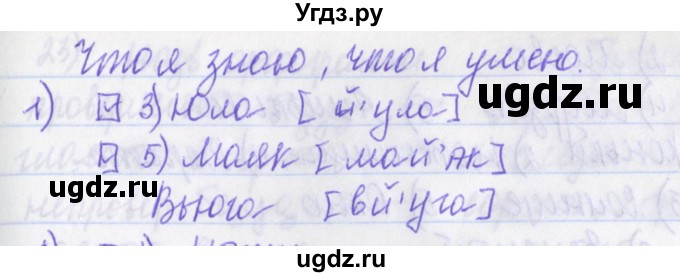 Угдз.ру
Что я знаю, что я умею.
1) ☑ 3) Юла [й'ула]
ugdz.ru
☑ 5) Маяк [май'ак]
Вьюга [вй'уга]
ugdz.ru
ugdz.ru